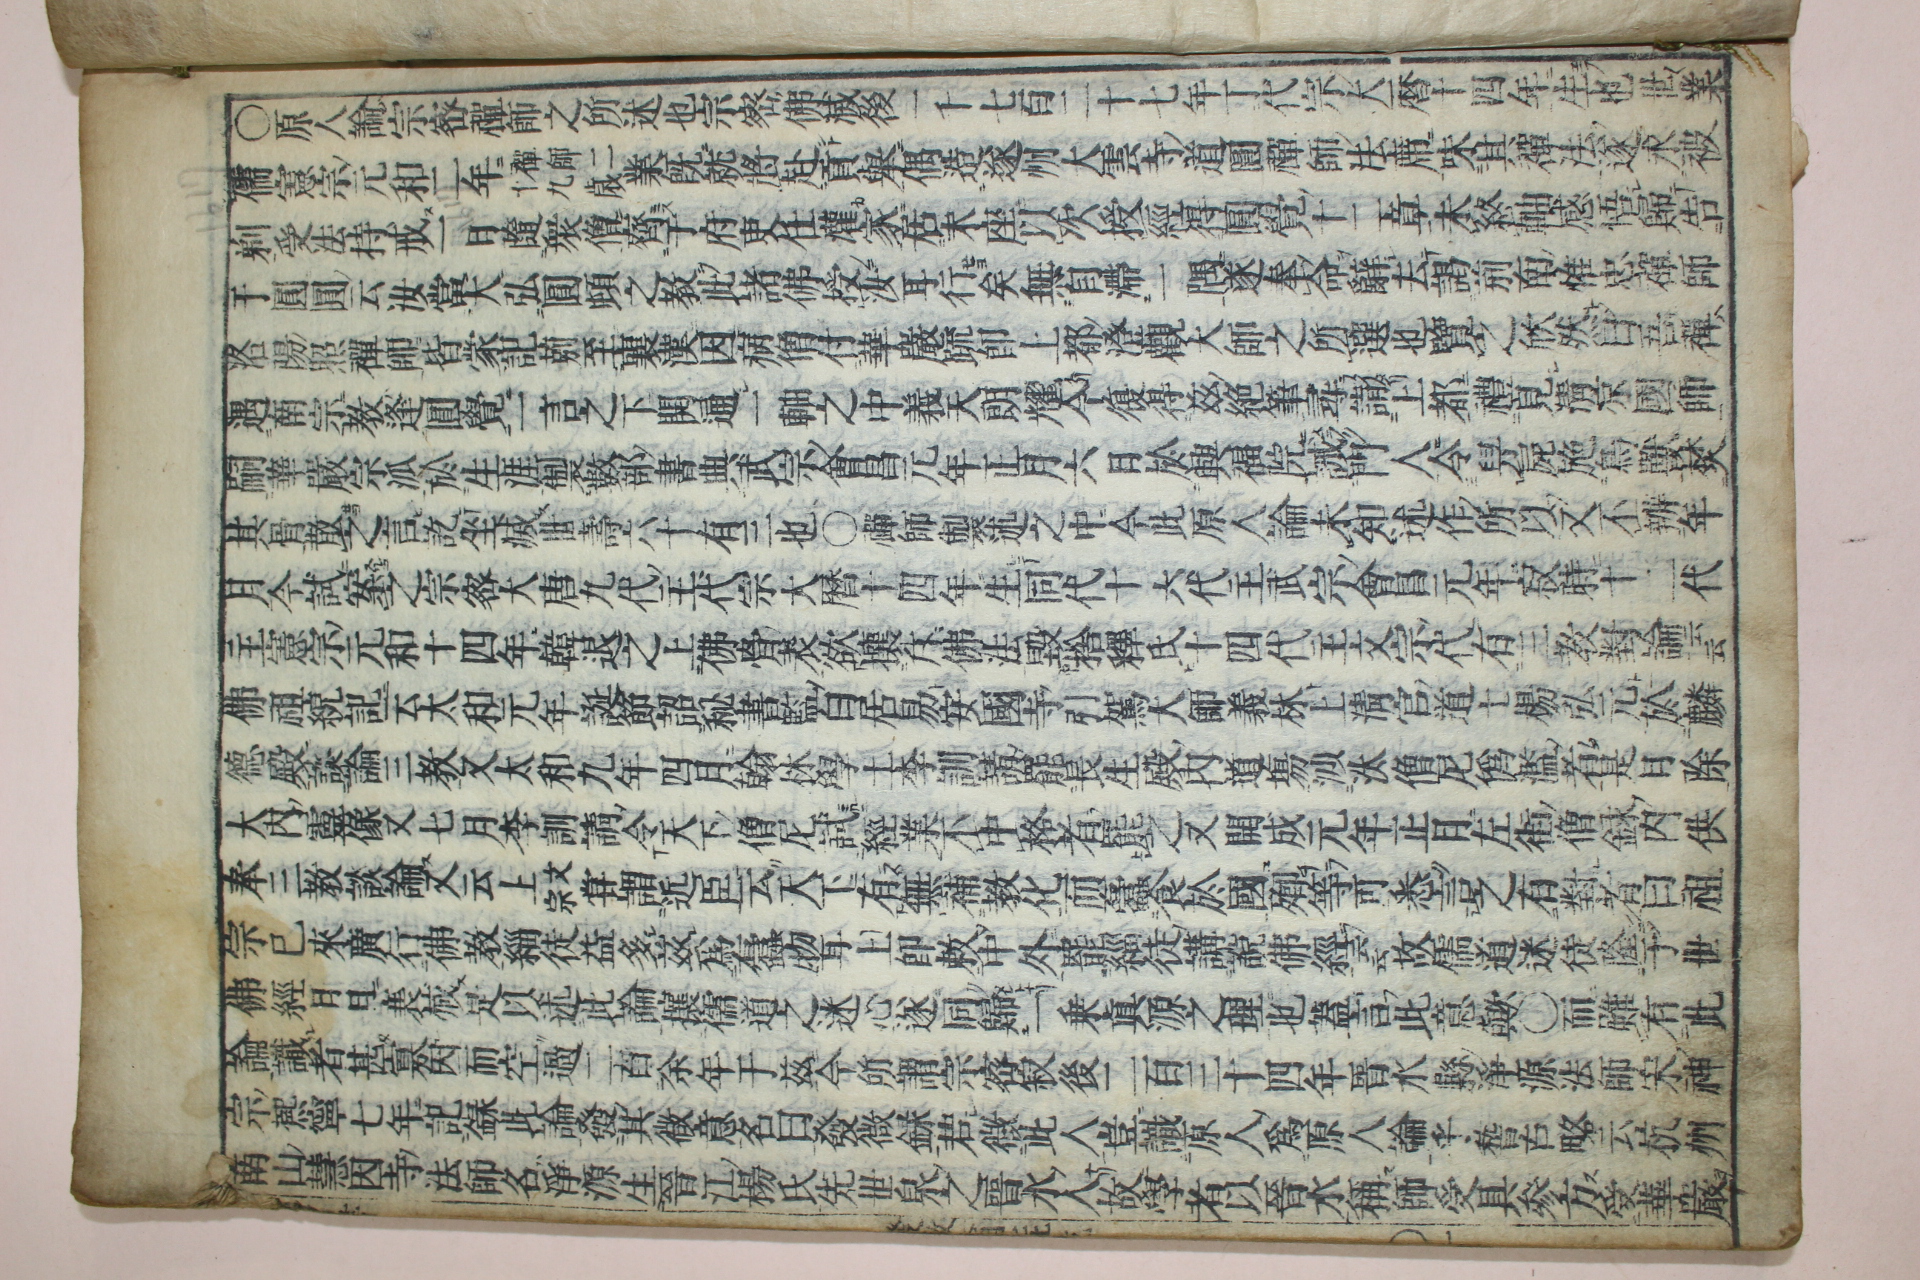 〇原人論宗密禪師之所述也宗密佛滅後一千七百二十七年丁代宗大曆十四年生也世業
儒憲宗元和二年禪師二十九歲業既就將赴貢舉偶造遂州大雲寺道圓禪師法席味其禪法遂求被
剃受法持戒一日隨衆僧齋于府吏任灌家居末座以次授經得圓覺十二章未終軸感悟歸告
于圓圓云汝當大弘圓頓之教此諸佛授汝耳行矣無自滯一隅遂奉命辭去謁荊南惟忠禪師
洛陽照禪師皆蒙記莂至襄漢因病僧付華嚴疏即上都澄觀大師之所選也覽之欣然曰吾禪
遇南宗教逢圓覺一言之下開通一軸之中義天朗耀今復得茲絕筆尋請上都禮覓清凉國師
嗣華嚴宗派於生涯製數部書典武宗會昌元年正月六日於興福院誡門人令舁屍施鳥獸焚
其骨散之言訖坐滅世壽六十有三也〇禪師製述之中今此原人論未知述作所以又不辨年
月今試案之宗密大唐九代主代宗大曆十四年生同代十六代主武宗會昌元年寂時十二代
主憲宗元和十四年韓退之上佛骨表欲攘斥佛法毀捨釋氏十四代主文宗代有三教對論云云
佛祖統記云太和元年誕節詔秘書監白居易安國寺引駕大師義林上清宮道士楊弘元於麟
德殿談論三教又太和九年四月翰林學士李訓請罷長生殿內道場沙汰僧尼僞濫者是日除
大內靈像又七月李訓請令天下僧尼試經業不中格者罷之又開成元年正月左街僧錄內供
奉三教談論又云上文宗甞謂近臣云天下有無補教化而蠹食於國卿等可悉言之有對者曰祖
宗已來廣行佛教緇徒益多茲爲蠹物耳上即敕中外罷緇徒講說佛經云云故儒道迷徒隆于世
佛經日日衰煞是以述此論攘儒道之迷心遂同歸一乘真源之理也蓋言此意歟〇而雖有此
論識者甚寡因而空過二百余年于茲今所謂宗密寂後二百三十四年晉水縣淨源法師宋神
宗熙寧七年記錄此論發其微意名曰發微錄若微此人豈識原人爲原人論乎稽古略云杭州
南山慧因寺法師名淨源生晉江楊氏先世泉之晉水人故學者以晉水稱師受具參方受華嚴